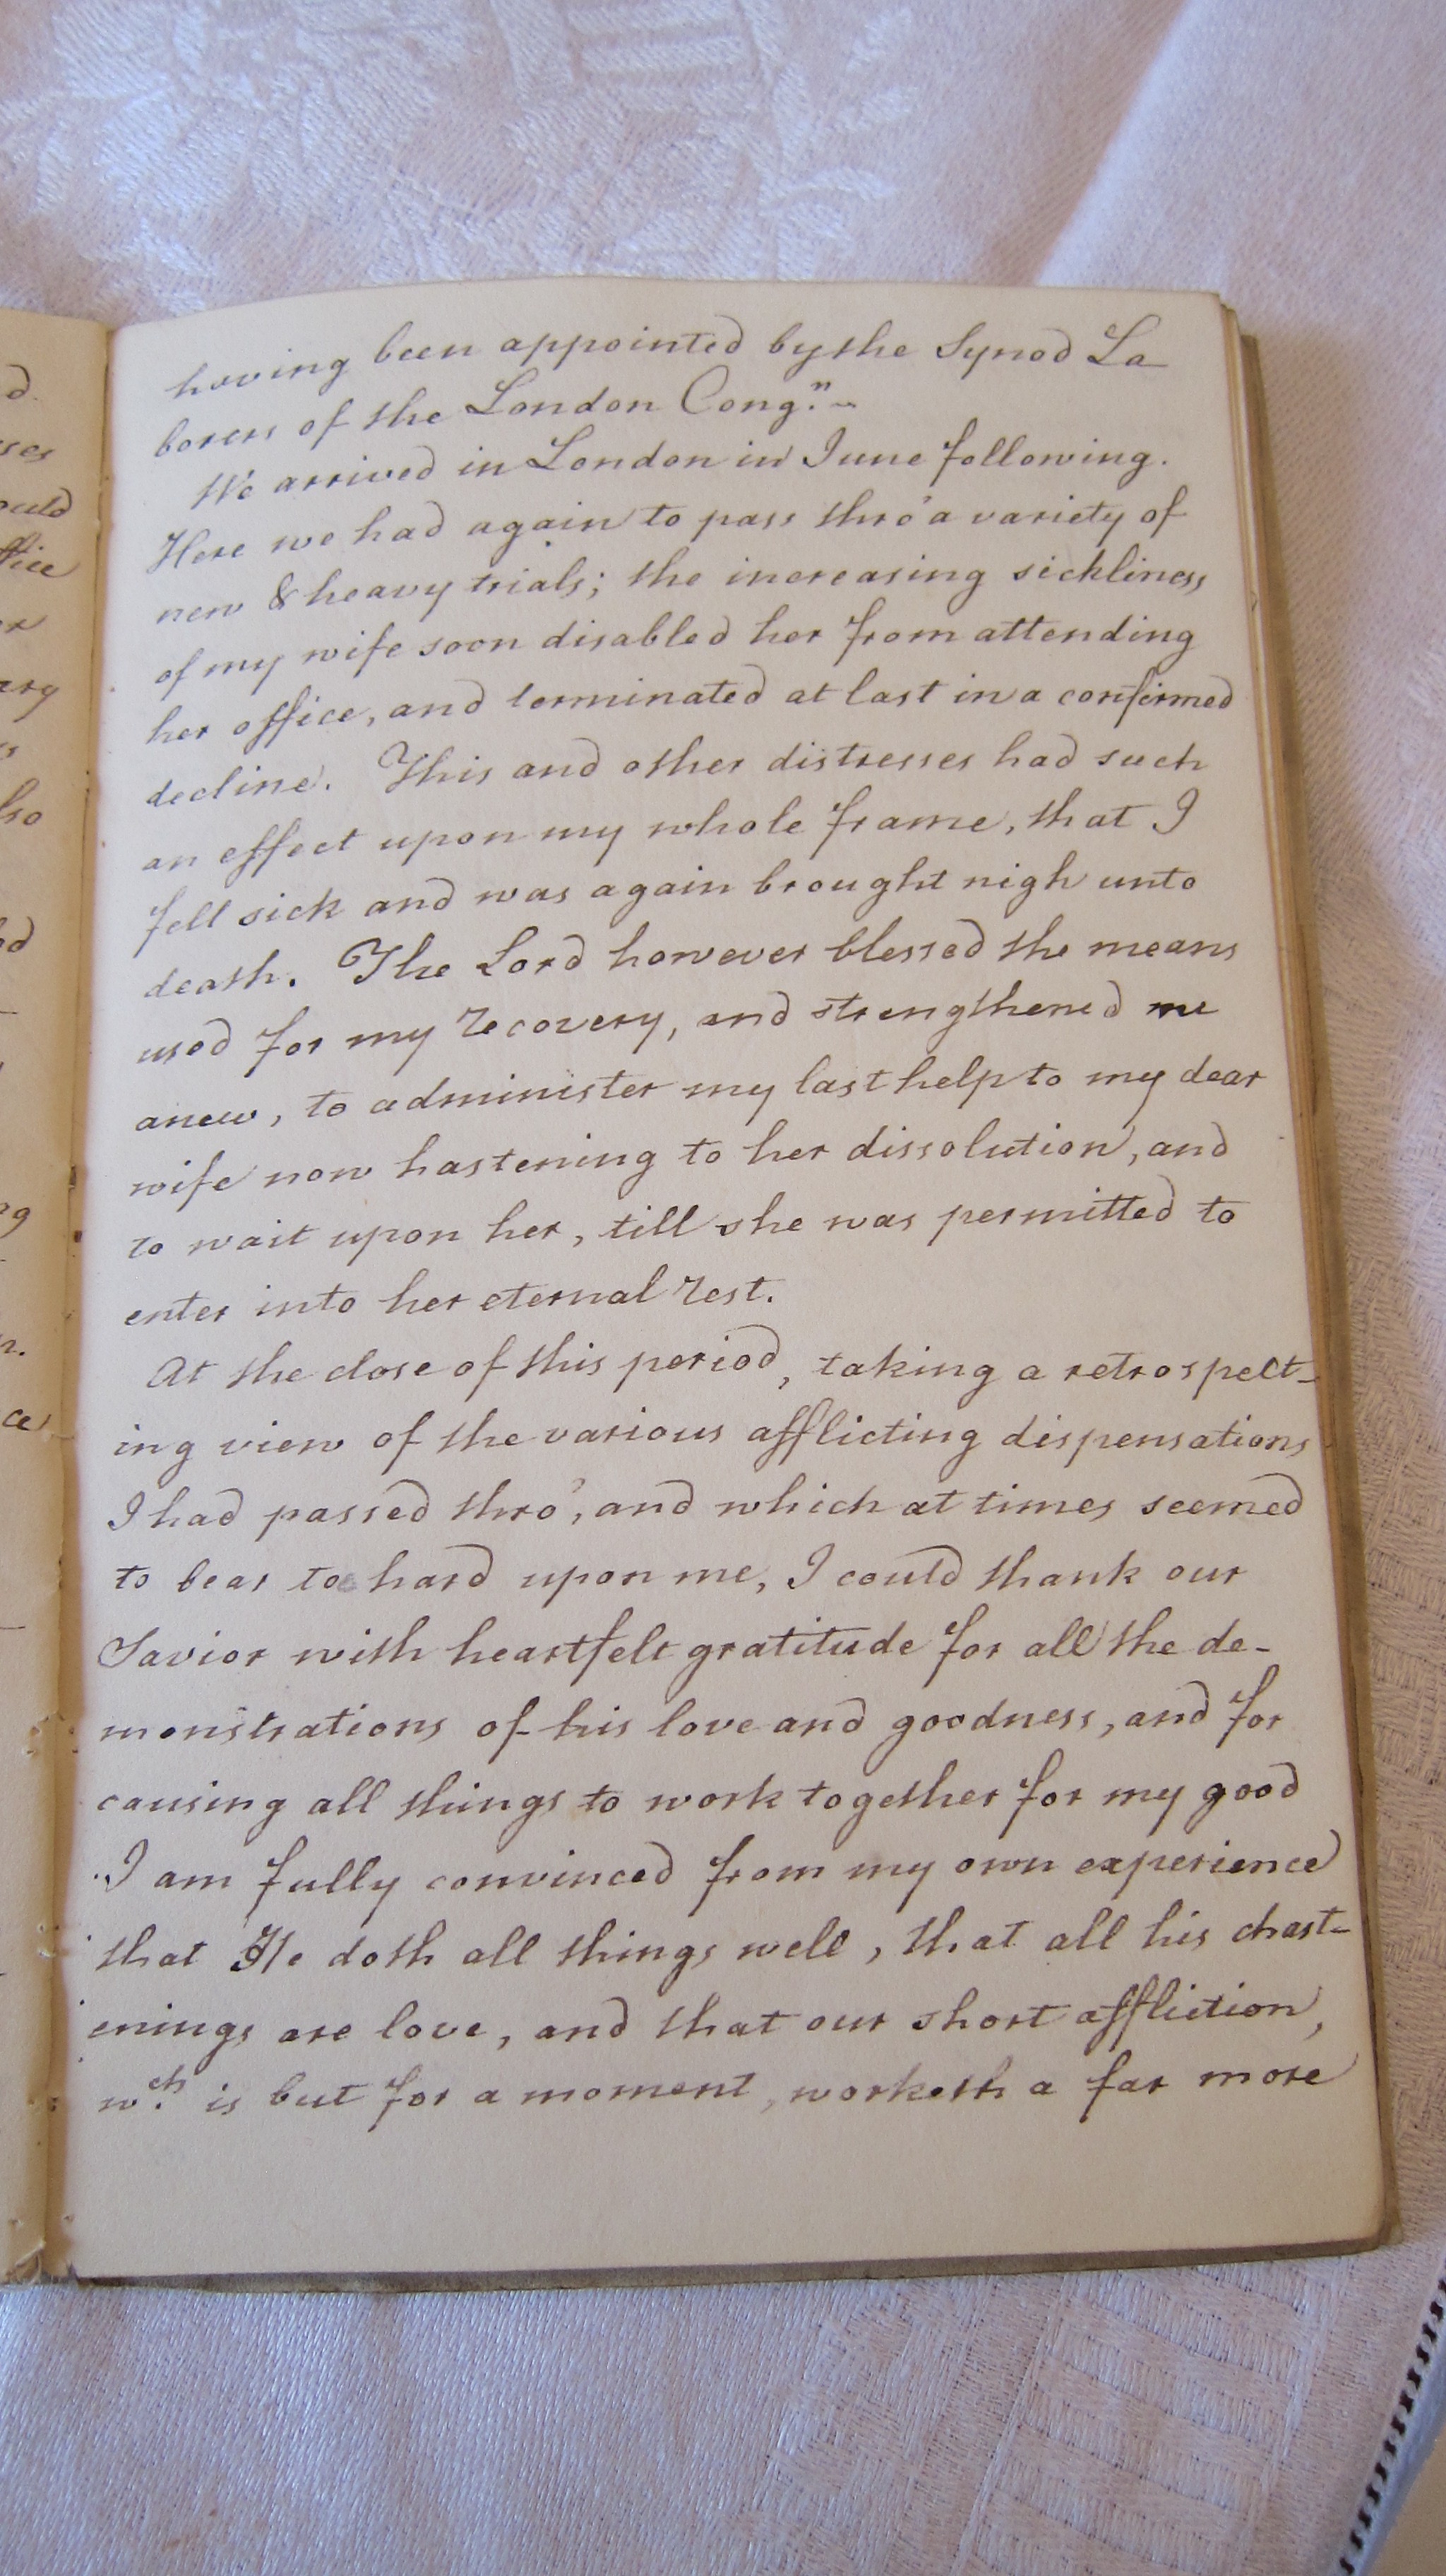 having been appointed by the Synod La
borers of the London Cong.n
We arrived in London in June following.
Here we had again to pass thro' a variety of
new & heavy trials; the increasing sickliness
of my wife soon disabled her from attending
her office, and terminated at last in a confirmed
decline. This and other distresses had such
an effect upon my whole frame, that I
fell sick and was again brought nigh unto
death. The Lord however blessed the means
used for my recovery, and strengthened me
anew, to administer my last help to my dear
wife now hastening to her dissolution, and
to wait upon her, till she was permitted to
enter into her eternal rest.
At the close of this period, taking a retrospect-
ing view of the various afflicting dispensations
I had passed thro', and which at times seemed
to bear to hard upon me, I could thank our
Savior with heartfelt gratitude for all the de-
monstrations of his love and goodness, and for
causing all things to work together for my good
I am fully convinced from my own experience
that He doth all things well, that all his chast-
enings are love, and that our short affliction,
wch. is but for a moment, worketh a far more